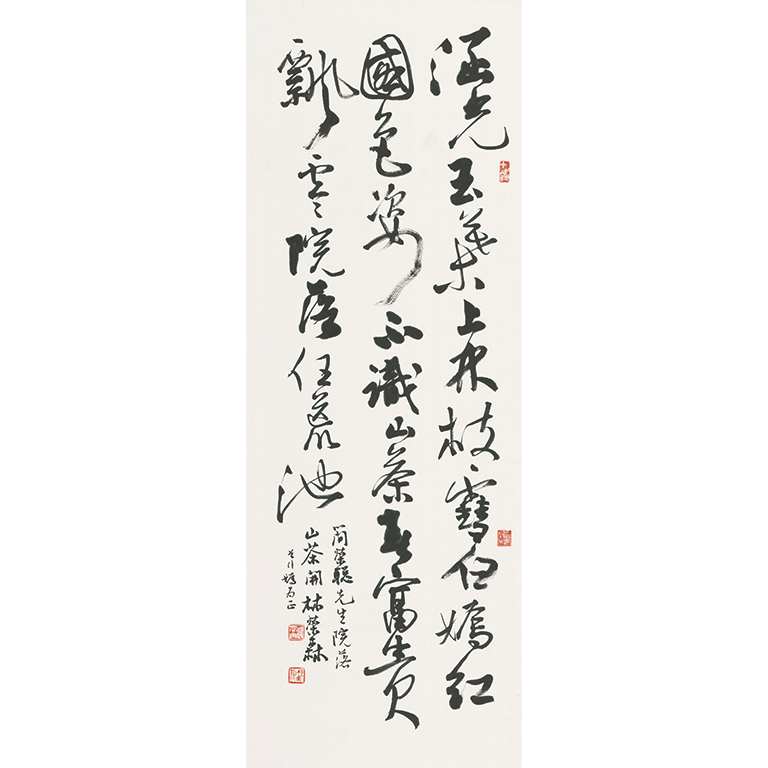 涵光玉葉上林枝雪白嬌紅
國色姿不識山茶真富貴
飄零院落任荒池
簡榮聰先生院落
山茶開林榮森